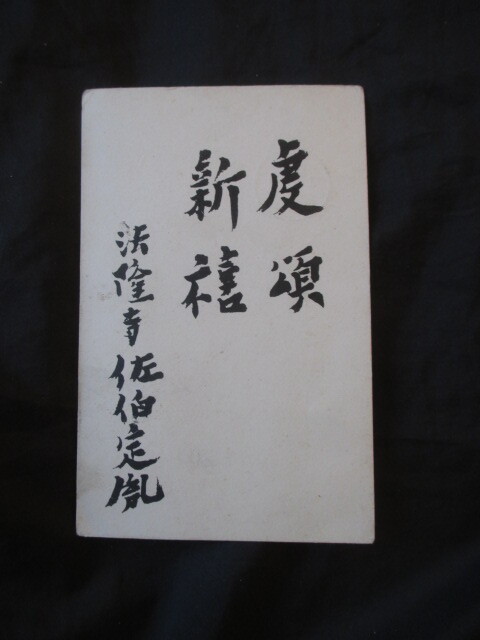 虔頌
新禧
法隆寺佐伯定胤